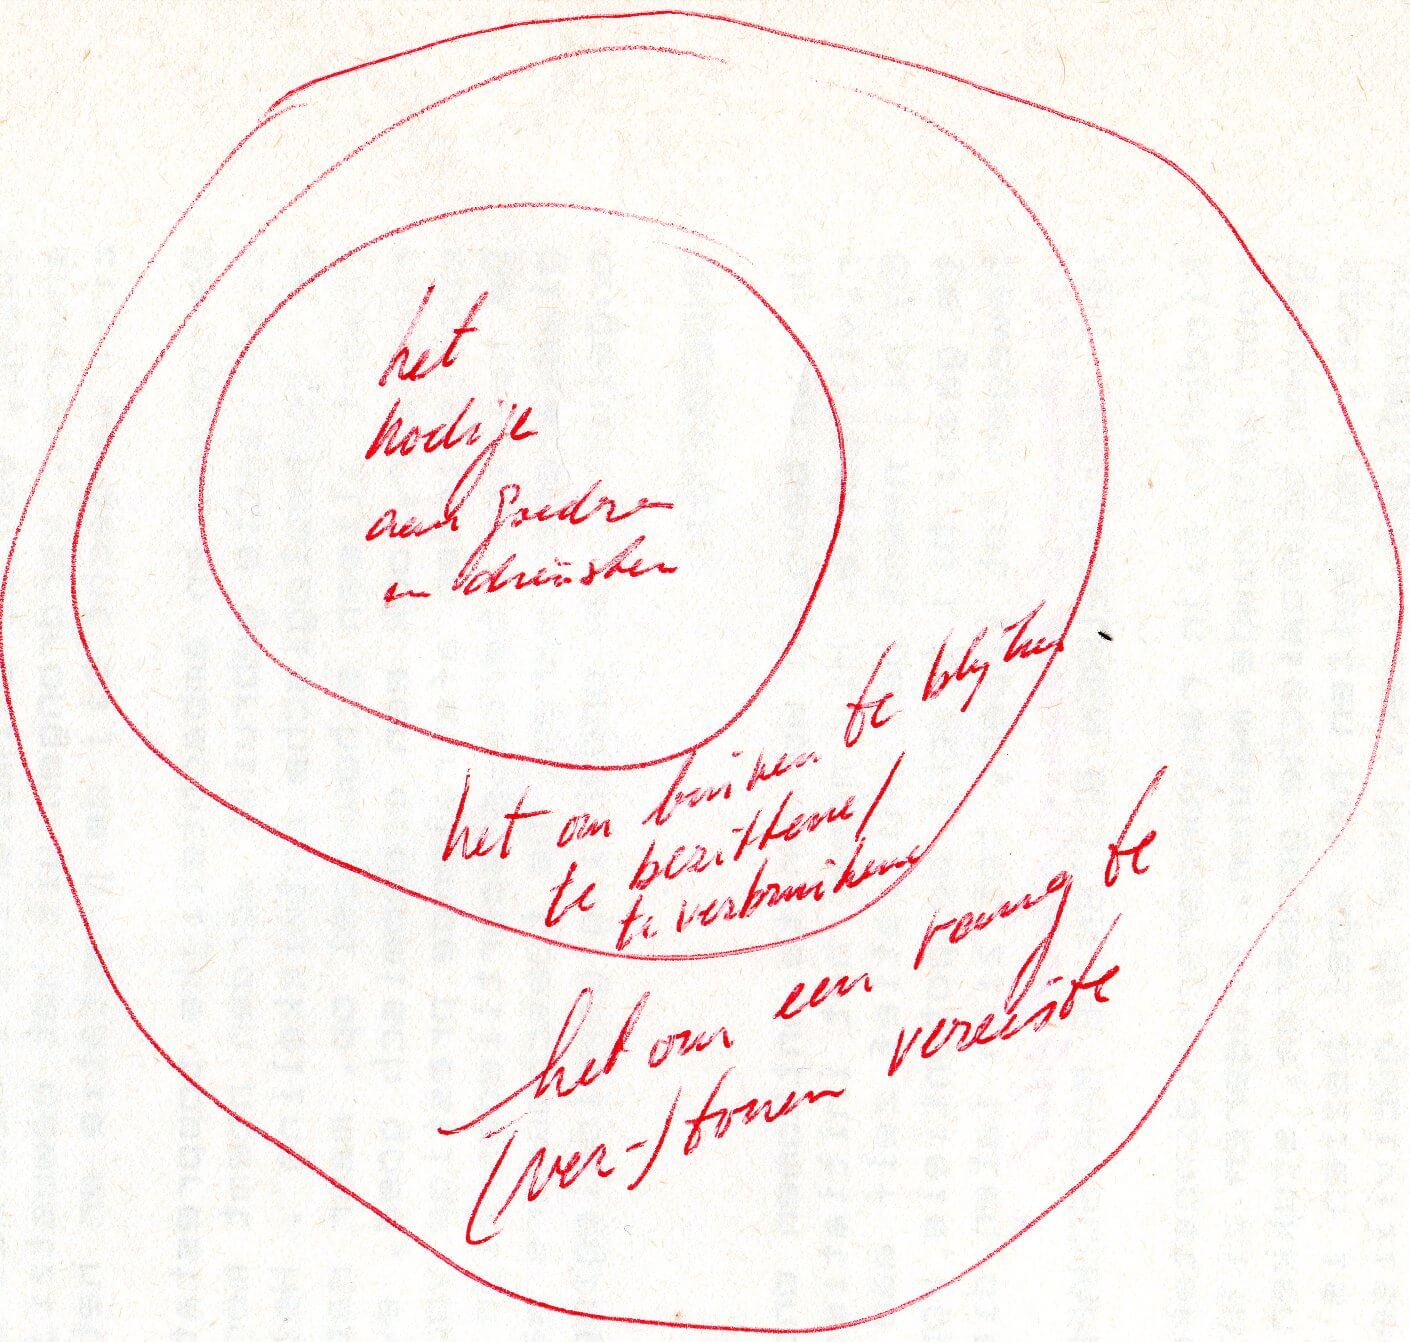 het
nodige
aan goedren
en diensten
het om binnen te blijven
te bezittene/
te verbruikene
het om een rang te
(ver-)tonen vereiste